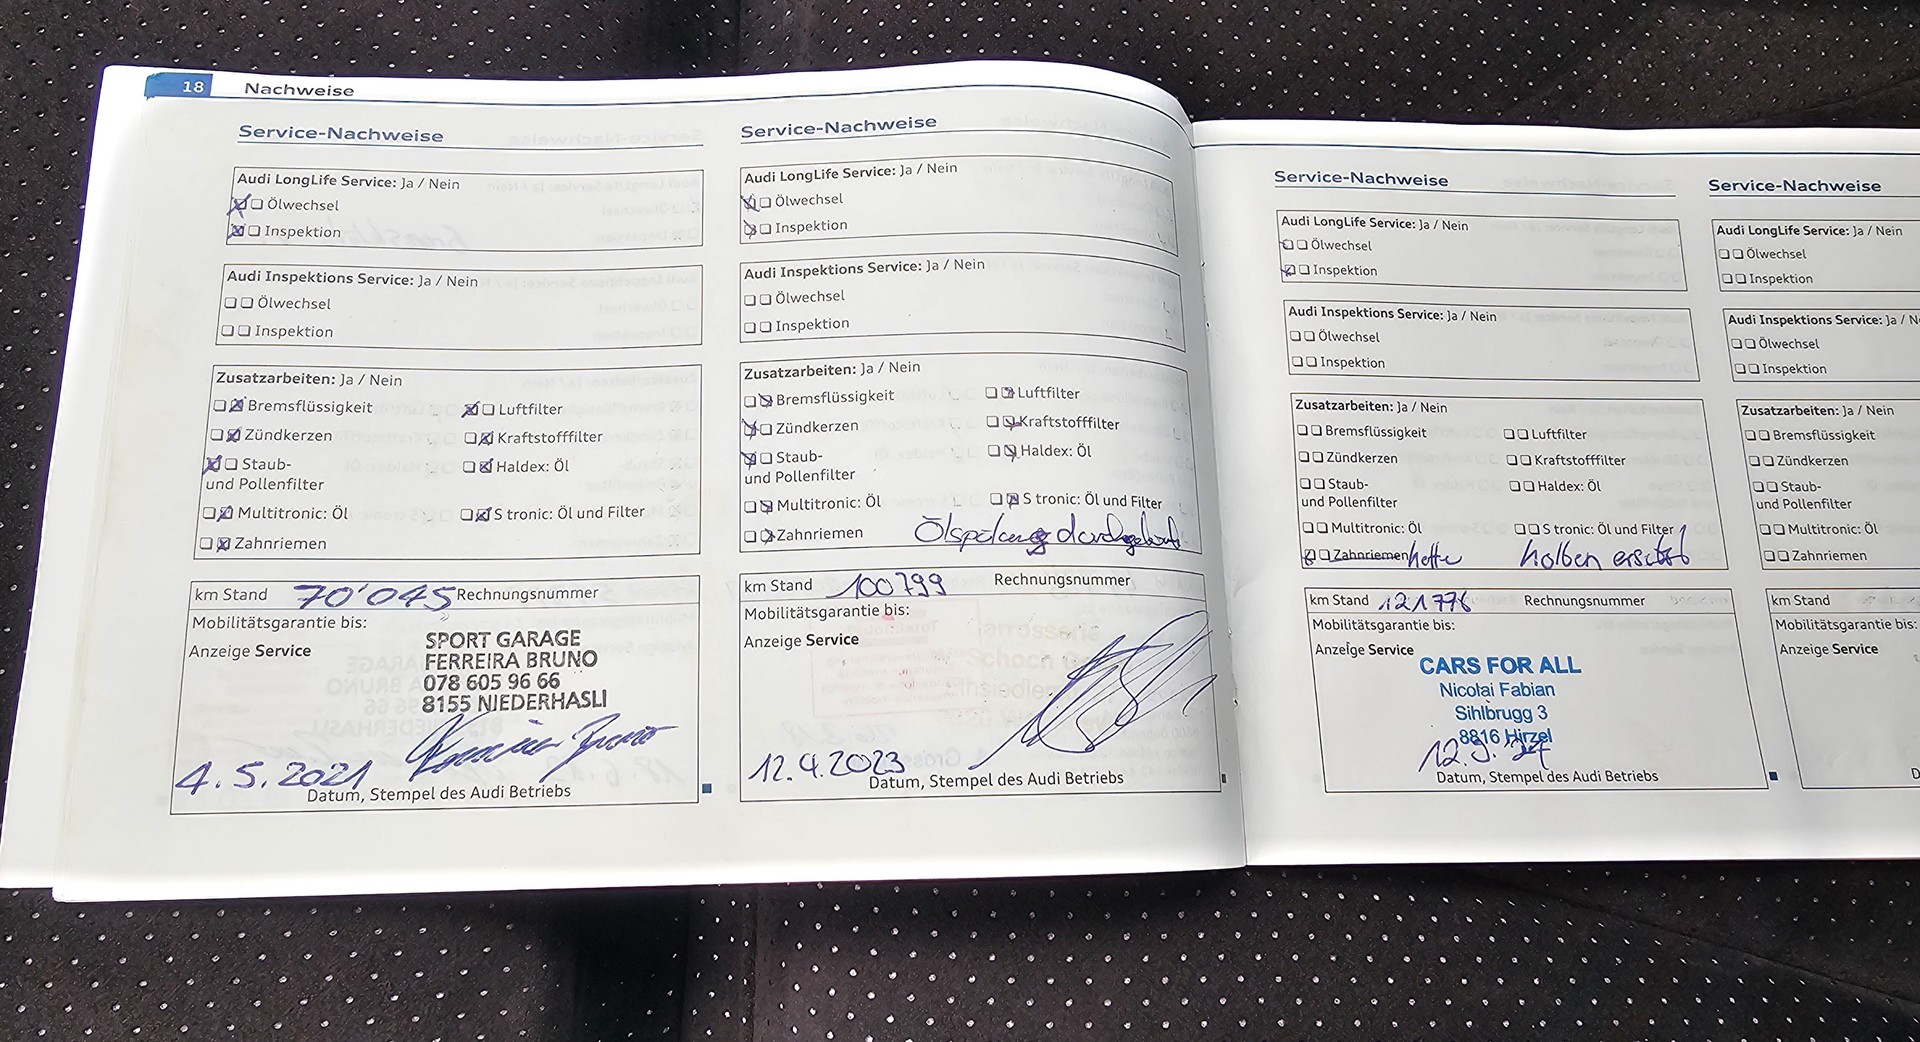 18 Nachweise
Service-Nachweise
Audi LongLife Service: Ja / Nein
Ölwechsel
Inspektion
Audi Inspektions Service: Ja / Nein
Ölwechsel
Inspektion
Zusatzarbeiten: Ja / Nein
Bremsflüssigkeit Luftfilter
Zündkerzen Kraftstofffilter
Staub- Haldex: Öl
und Pollenfilter
Multitronic: Öl S tronic: Öl und Filter
Zahnriemen
km Stand 70'045 Rechnungsnummer
Mobilitätsgarantie bis:
Anzeige Service
SPORT GARAGE
FERREIRA BRUNO
078 605 96 66
8155 NIEDERHASLI
4.5.2021
Datum, Stempel des Audi Betriebs
Service-Nachweise
Audi LongLife Service: Ja / Nein
Ölwechsel
Inspektion
Audi Inspektions Service: Ja / Nein
Ölwechsel
Inspektion
Zusatzarbeiten: Ja / Nein
Bremsflüssigkeit Luftfilter
Zündkerzen Kraftstofffilter
Staub- Haldex: Öl
und Pollenfilter
Multitronic: Öl S tronic: Öl und Filter
Zahnriemen
km Stand 100799 Rechnungsnummer
Mobilitätsgarantie bis:
Anzeige Service
12.4.2023
Datum, Stempel des Audi Betriebs
Service-Nachweise
Audi LongLife Service: Ja / Nein
Ölwechsel
Inspektion
Audi Inspektions Service: Ja / Nein
Ölwechsel
Inspektion
Zusatzarbeiten: Ja / Nein
Bremsflüssigkeit Luftfilter
Zündkerzen Kraftstofffilter
Staub- Haldex: Öl
und Pollenfilter
Multitronic: Öl S tronic: Öl und Filter
Zahnriemen kette kolben ersetzt
km Stand 121776 Rechnungsnummer
Mobilitätsgarantie bis:
Anzeige Service
CARS FOR ALL
Nicolai Fabian
Sihlbrugg 3
8816 Hirzel
12.9.24
Datum, Stempel des Audi Betriebs
Service-Nachweise
Audi LongLife Service: Ja / Nein
Ölwechsel
Inspektion
Audi Inspektions Service: Ja / N
Ölwechsel
Inspektion
Zusatzarbeiten: Ja / Nein
Bremsflüssigkeit
Zündkerzen
Staub-
und Pollenfilter
Multitronic: Öl
Zahnriemen
km Stand
Mobilitätsgarantie bis:
Anzeige Service
D